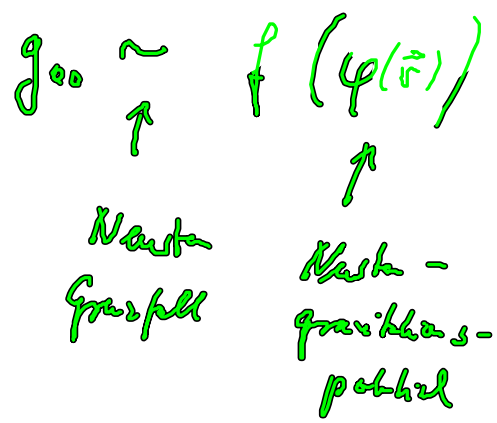 g₀₀ ~ f (φ(r⃗))
↑ ↑
Newton
Grenzfall
Newton -
gravitations-
potential